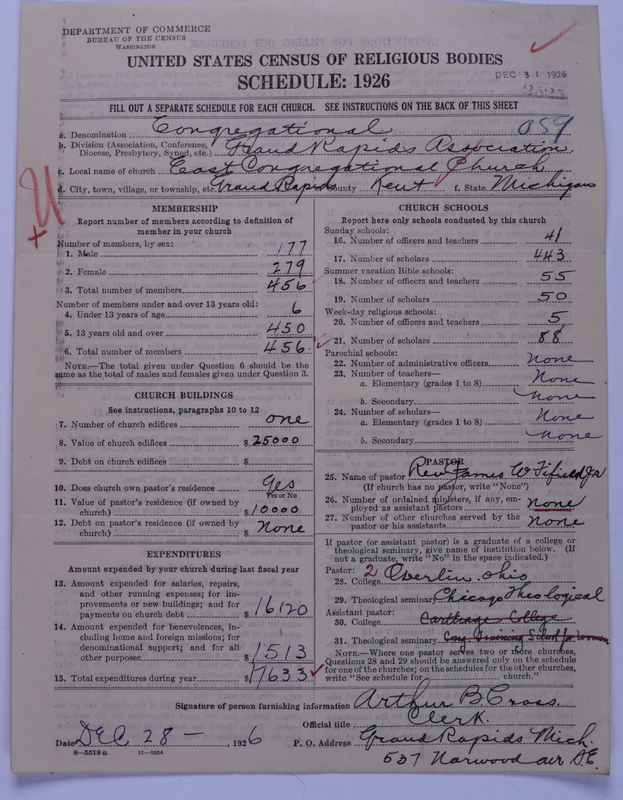 DEPARTMENT OF COMMERCE
BUREAU OF THE CENSUS
WASHINGTON
UNITED STATES CENSUS OF RELIGIOUS BODIES
DEC 31 1926
SCHEDULE: 1926
2525
FILL OUT A SEPARATE SCHEDULE FOR EACH CHURCH. SEE INSTRUCTIONS ON THE BACK OF THIS SHEET
a. Denomination Congregational 059
b. Division (Association, Conference, Diocese, Presbytery, Synod, etc.) Grand Rapids Association
c. Local name of church East Congregational Church
d. City, town, village, or township, etc. Grand Rapids County Kent f. State Michigan
MEMBERSHIP
Report number of members according to definition of member in your church
Number of members, by sex:
1. Male 177
2. Female 279
3. Total number of members 456
Number of members under and over 13 years old:
4. Under 13 years of age 6
5. 13 years old and over 450
6. Total number of members 456
NOTE.—The total given under Question 6 should be the same as the total of males and females given under Question 3.
CHURCH BUILDINGS
See instructions, paragraphs 10 to 12
7. Number of church edifices one
8. Value of church edifices $ 25000
9. Debt on church edifices $
10. Does church own pastor's residence Yes
Yes or No
11. Value of pastor's residence (if owned by church) $ 10000
12. Debt on pastor's residence (if owned by church) $ None
EXPENDITURES
Amount expended by your church during last fiscal year
13. Amount expended for salaries, repairs, and other running expenses; for improvements or new buildings; and for payments on church debt $ 16120
14. Amount expended for benevolences, including home and foreign missions; for denominational support; and for all other purposes $ 1513
15. Total expenditures during year $ 17633
CHURCH SCHOOLS
Report here only schools conducted by this church
Sunday schools:
16. Number of officers and teachers 41
17. Number of scholars 443
Summer vacation Bible schools:
18. Number of officers and teachers 55
19. Number of scholars 50
Week-day religious schools:
20. Number of officers and teachers 5
21. Number of scholars 88
Parochial schools:
22. Number of administrative officers None
23. Number of teachers—
a. Elementary (grades 1 to 8) None
b. Secondary None
24. Number of scholars—
a. Elementary (grades 1 to 8) None
b. Secondary None
PASTOR
25. Name of pastor Rev James W Fifield Jr
(If church has no pastor, write "None")
26. Number of ordained ministers, if any, employed as assistant pastors none
27. Number of other churches served by the pastor or his assistants None
If pastor (or assistant pastor) is a graduate of a college or theological seminary, give name of institution below. (If not a graduate, write "No" in the space indicated.)
Pastor: 2
28. College Oberlin, Ohio
29. Theological seminary Chicago Theological
Assistant pastor:
30. College Carthage College
31. Theological seminary Cong Training School for women
NOTE.—Where one pastor serves two or more churches, Questions 28 and 29 should be answered only on the schedule for one of the churches; on the schedules for the other churches, write "See schedule for church."
Signature of person furnishing information Arthur B Cross.
Official title Clerk.
Date DEC 28 — , 1926 P. O. Address Grand Rapids Mich.
537 Norwood av S.E.
8—5518a 11—9054